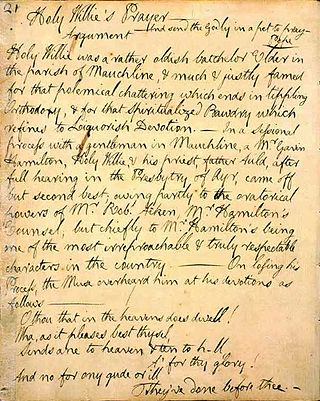 21 Holy Willie's Prayer —
Argument — And send the Godly in a pet to pray —
Pope
Holy Willie was a rather oldish batchelor Elder in
the parish of Mauchline, & much & justly famed
for that polemical chattering which ends in tippling
Orthodoxy, & for that Spiritualized Bawdry which
refines to Liquorish Devotion. — In a Sessional
process with a gentleman in Mauchline, a Mr. Gavin
Hamilton, Holy Willie, & his priest father Auld, after
full hearing in the Presbytry of Ayr, came off
but second best, owing partly to the oratorical
powers of Mr. Robt. Aiken, Mr. Hamilton's
Counsel, but chiefly to Mr. Hamilton's being
one of the most irreproachable & truly respectable
characters in the country. — On losing his
Process, the Muse overheard him at his devotions as
follows —
O thou that in the heavens does dwell!
Wha, as it pleases best thysel,
Sends ane to heaven & ten to h-ll
A' for thy glory!
And no for ony gude or ill
They've done before thee. —